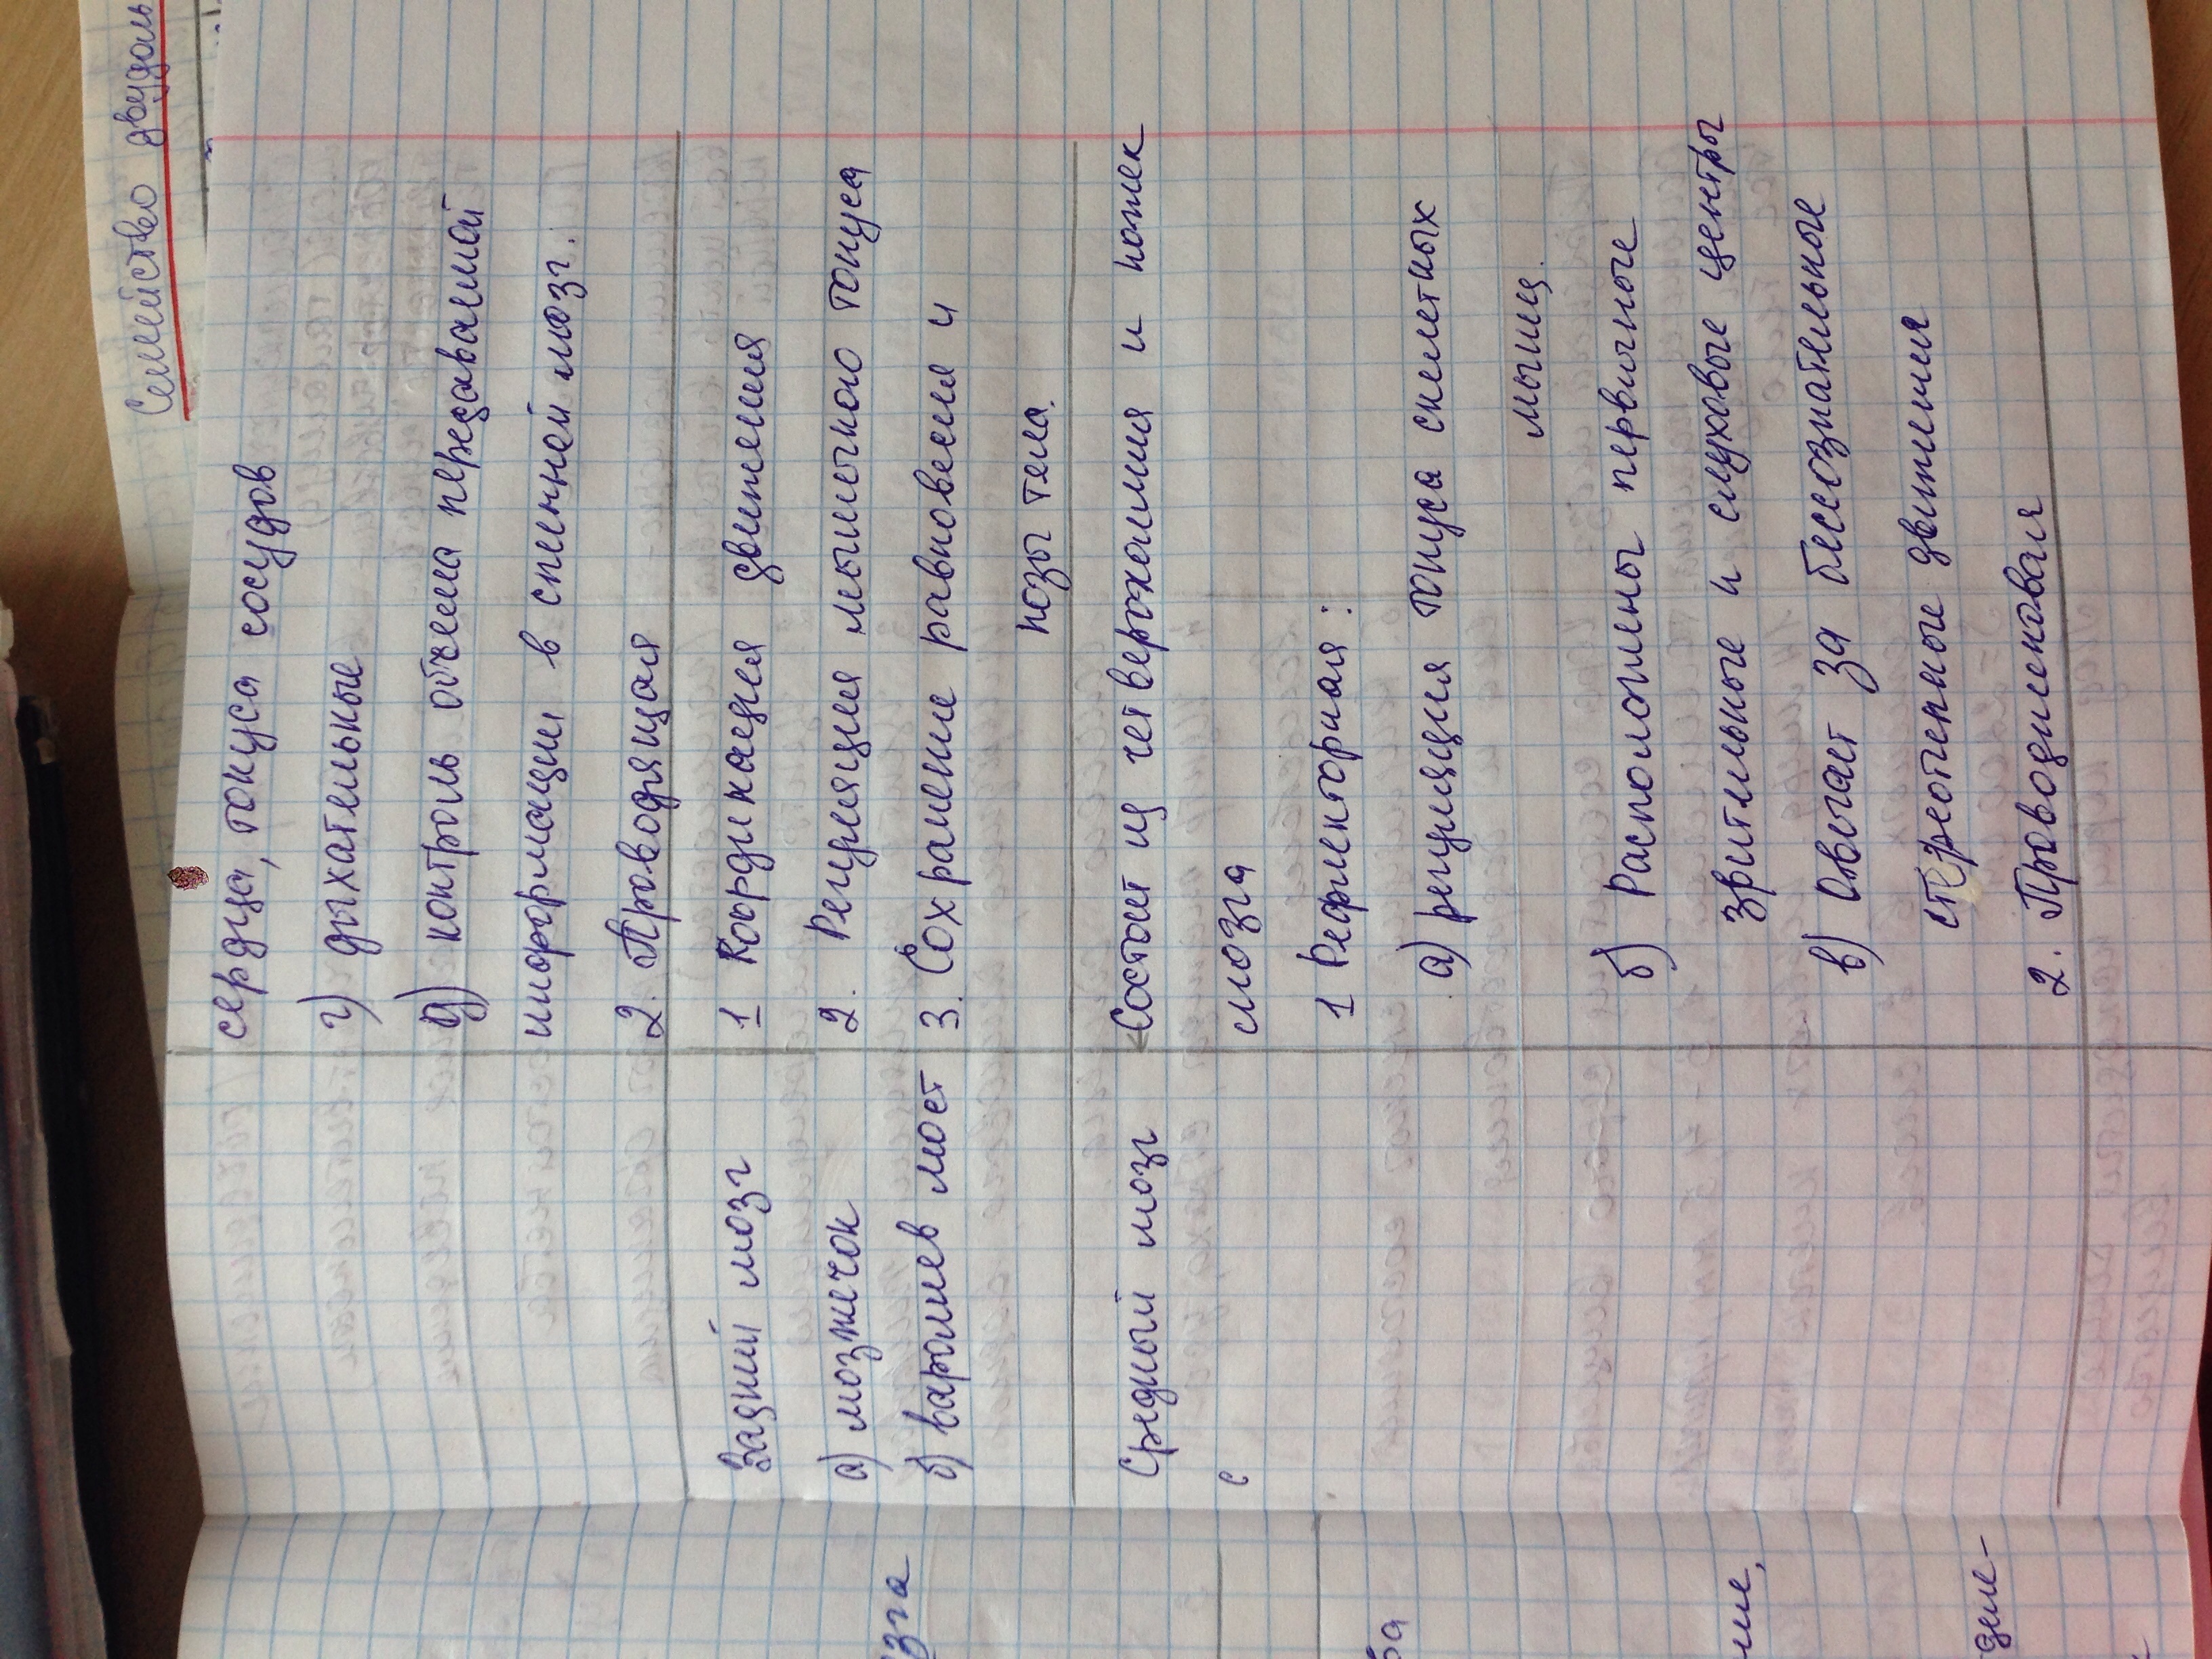 Семейство двудоль
сердца, тонуса сосудов
г) дыхательные
д) контроль объема передаваемой
информации в спинной мозг.
2. Проводящая
Задний мозг
а) мозжечок
б) варолиев мост
1 Координация движения
2. Регуляция мышечного тонуса
3. Сохранение равновесия и
позы тела.
Средный мозг
с
Состоит из четверохолмия и ножек
мозга
1 Рефлекторная:
а) регуляция тонуса скелетных
мышц.
б) Расположены первичные
зрительные и слуховые центры
в) Отвечает за бессознательное
стереотепные движения
2. Проводниковая
зга
ба
ние,
дне-